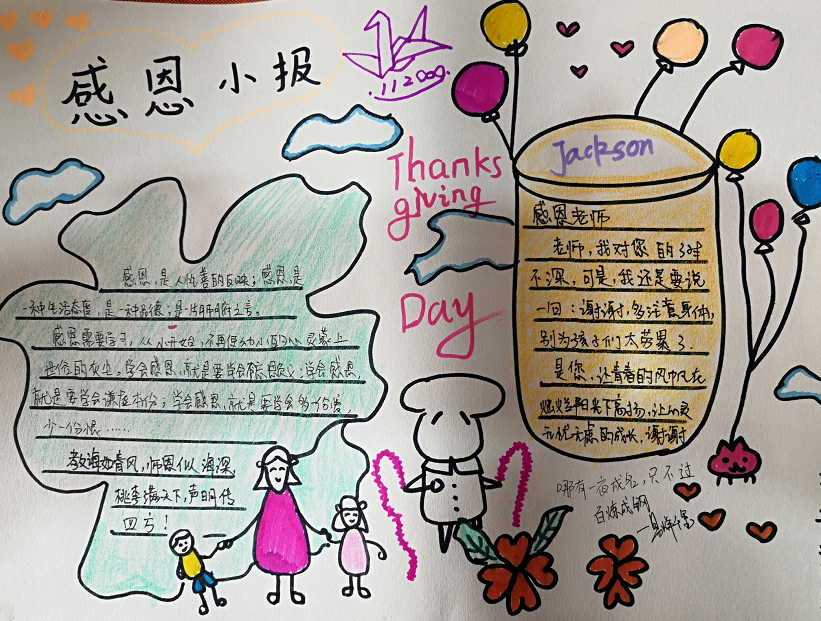 感恩小报
.11 2000.
Thanks
giving
Day
Jackson
感恩老师
老师,我对您的
不深,可是,我还是要说
一回:谢谢,多注意身体,
别为孩子们太劳累了.
是您,让青春的风帆在
阳光下高扬,让心灵
无忧无虑的成长,谢谢
感恩,是人性善的反映;感恩,是
一种生活态度,是一种品德;是一片肺腑之言。
感恩需要学习,从小开始,不再使幼小的心灵蒙上
世俗的灰尘,学会感恩,就是要学会
学会感恩,
就是要学会谦虚本份;学会感恩,就是要学会多一份爱,
少一份恨……
教诲如春风,师恩似海深,
桃李满天下,声明传
四方!
哪有一夜成名,只不过
百炼成钢